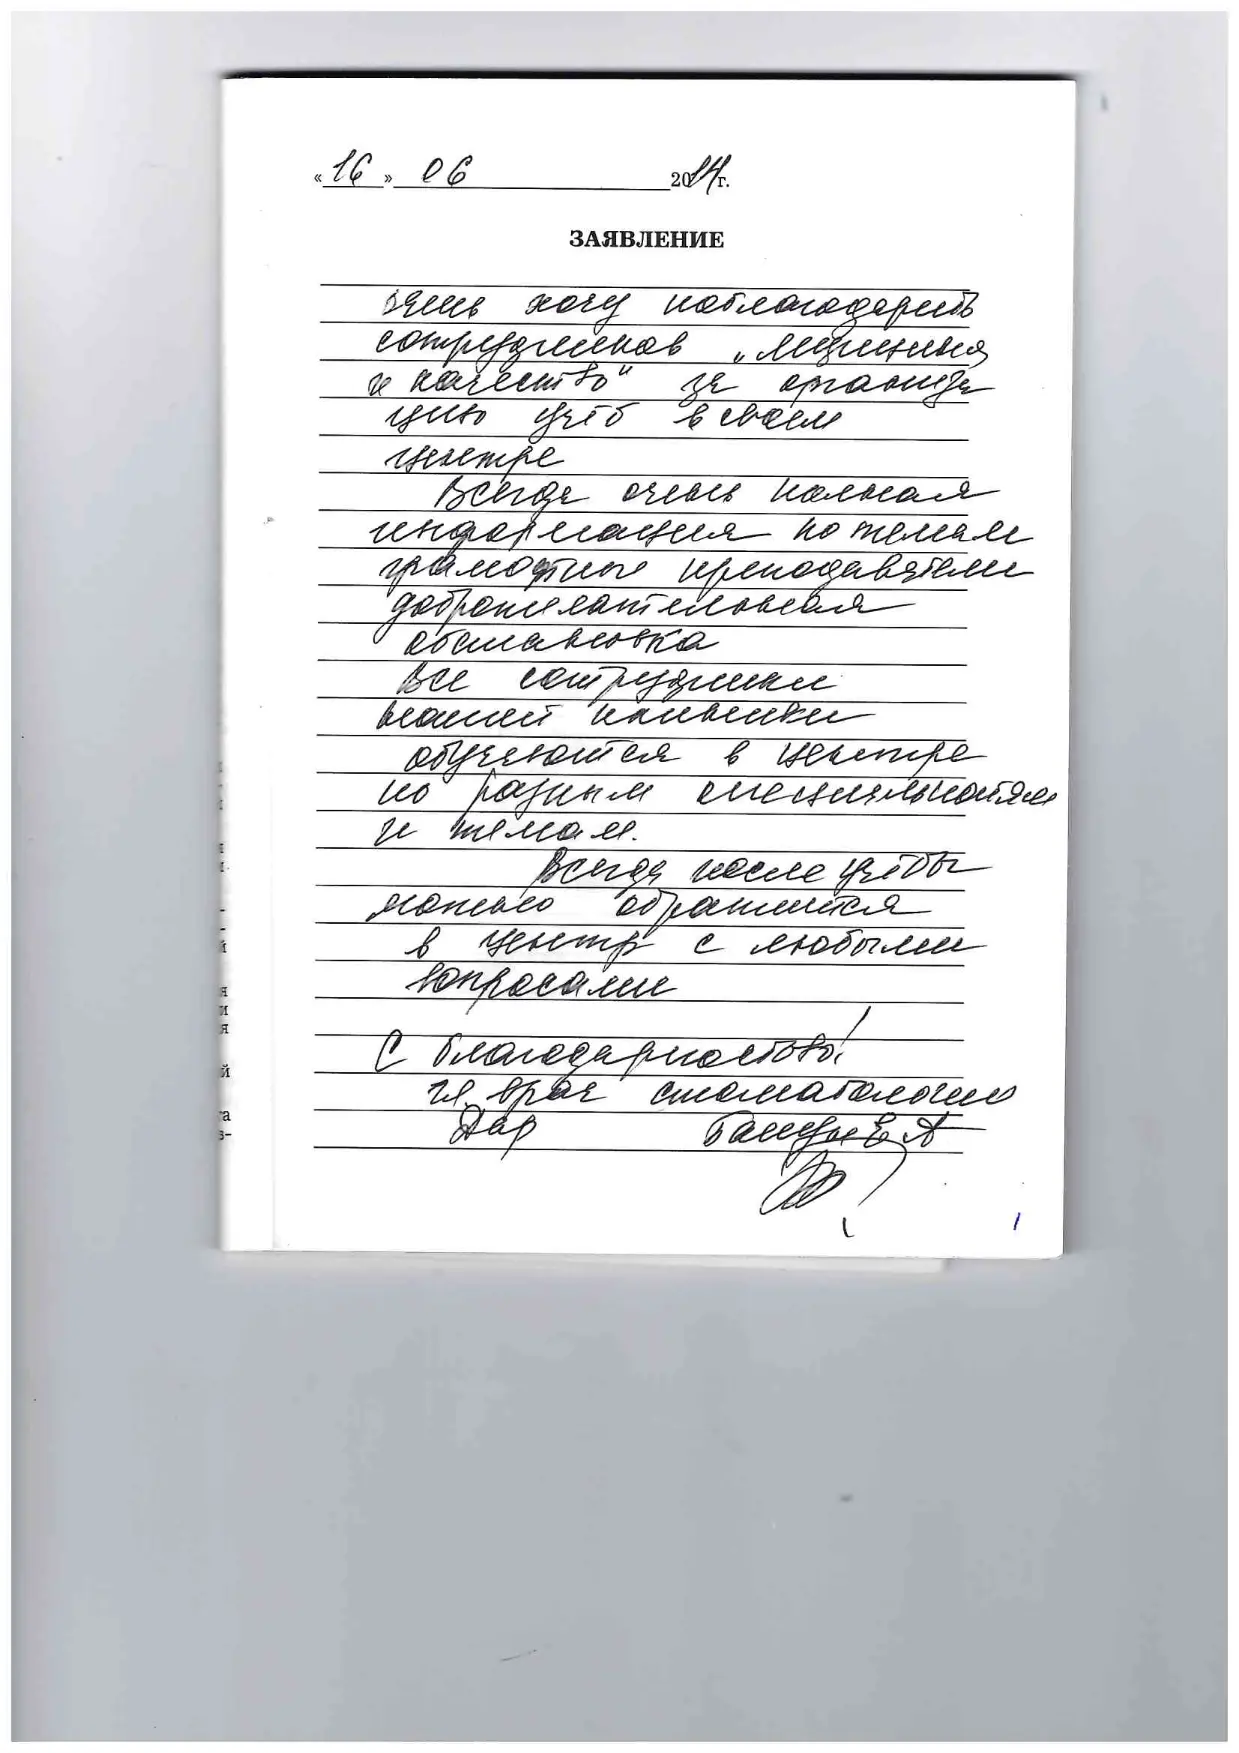 «16» 06 2014г.
ЗАЯВЛЕНИЕ
очень хочу поблагодарить
сотрудников „Медицина
и качество“ за организа
цию учёб в своем
центре
Всегда очень полная
информация по темам
грамотные преподаватели
доброжелательная
обстановка
Все сотрудники
нашей клиники
обучаются в центре
по разным специальностям
и темам.
Всегда после учёбы
можно обратиться
в центр с любыми
вопросами
С благодарностью!
гл. врач стоматологии
Дар
1